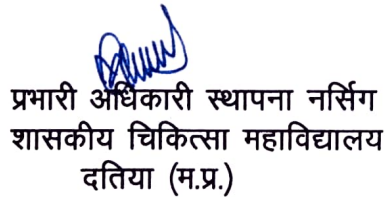 प्रभारी अधिकारी स्थापना नर्सिग
शासकीय चिकित्सा महाविद्यालय
दतिया (म.प्र.)